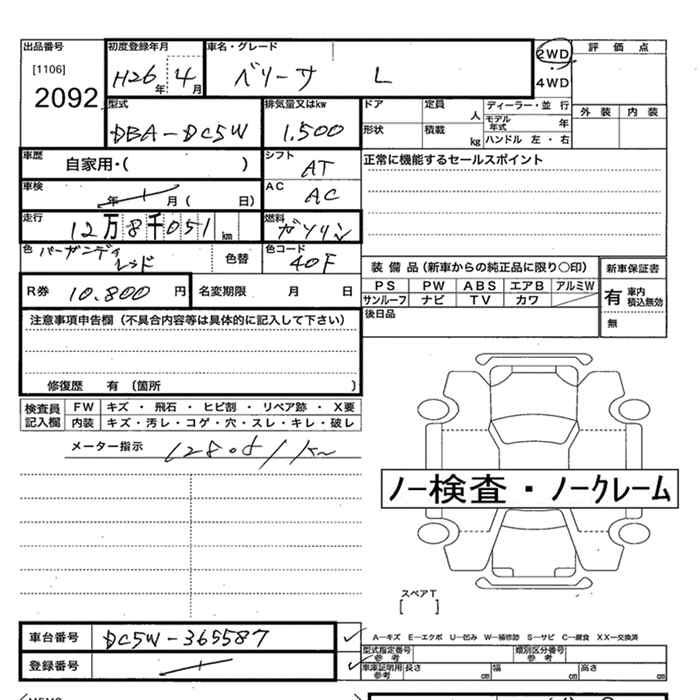 出品番号 初度登録年月 車名・グレード 2WD 評価点
[1106] H26年 4月 ベリーサ L 4WD
2092
型式 排気量又はkw ドア 定員 人 ディーラー・並行 外装 内装
DBA-DC5W 1.500 形状 積載 kg モデル年式 年 ハンドル 左・右
車歴 自家用・( ) シフト AT 正常に機能するセールスポイント
車検 年 月 ( 日) AC AC
走行 12万8千051km 燃料 ガソリン
色 バーガンディレッド 色替 色コード 40F
装備品(新車からの純正品に限り○印) 新車保証書
R券 10.800円 名変期限 月 日 PS PW ABS エアB アルミW 有 車内積込無効
サンルーフ ナビ TV カワ
注意事項申告欄(不具合内容等は具体的に記入して下さい) 後日品 無
修復歴 有 〔箇所 〕
検査員記入欄 FW キズ・飛石・ヒビ割・リペア跡・X要
内装 キズ・汚レ・コゲ・穴・スレ・キレ・破レ
メーター指示 128.051km
ノー検査・ノークレーム
スペアT
[ ]
車台番号 DC5W-365587 A-キズ E-エクボ U-凹み W-補修跡 S-サビ C-腐食 XX-交換済
型式指定番号参考 類別区分番号参考
登録番号 車庫証明用参考 長さ cm 幅 cm 高さ cm